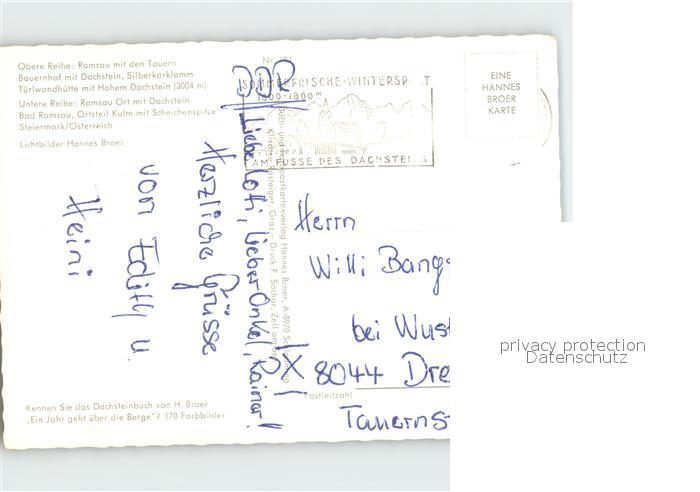 Obere Reihe: Ramsau mit den Tauern
Bauernhof mit Dachstein, Silberkarklamm
Türlwandhütte mit Hohem Dachstein (3004 m)
Untere Reihe: Ramsau Ort mit Dachstein
Bad Ramsau, Ortsteil Kulm mit Scheichenspitze
Steiermark/Österreich
Lichtbilder Hannes Broer
DDR
SOMMERFRISCHE-WINTERSP T
AM FUSSE DES DACHSTEINS
EINE
HANNES
BROER
KARTE
Liebe Loti, lieber Onkel, Rainer!
Herzliche Grüsse
von Edith u.
Heini
Buch- und Kunstpostkartenverlag Hannes Broer, A-8970 Schladming
Graz - Druck F. Sochor, Zell am See
Herrn
Willi Bang
bei Wust
8044 Dre
Postleitzahl
Tauernst
Kennen Sie das Dachsteinbuch von H. Broer
„Ein Jahr geht über die Berge"? 170 Farbbilder
privacy protection
Datenschutz